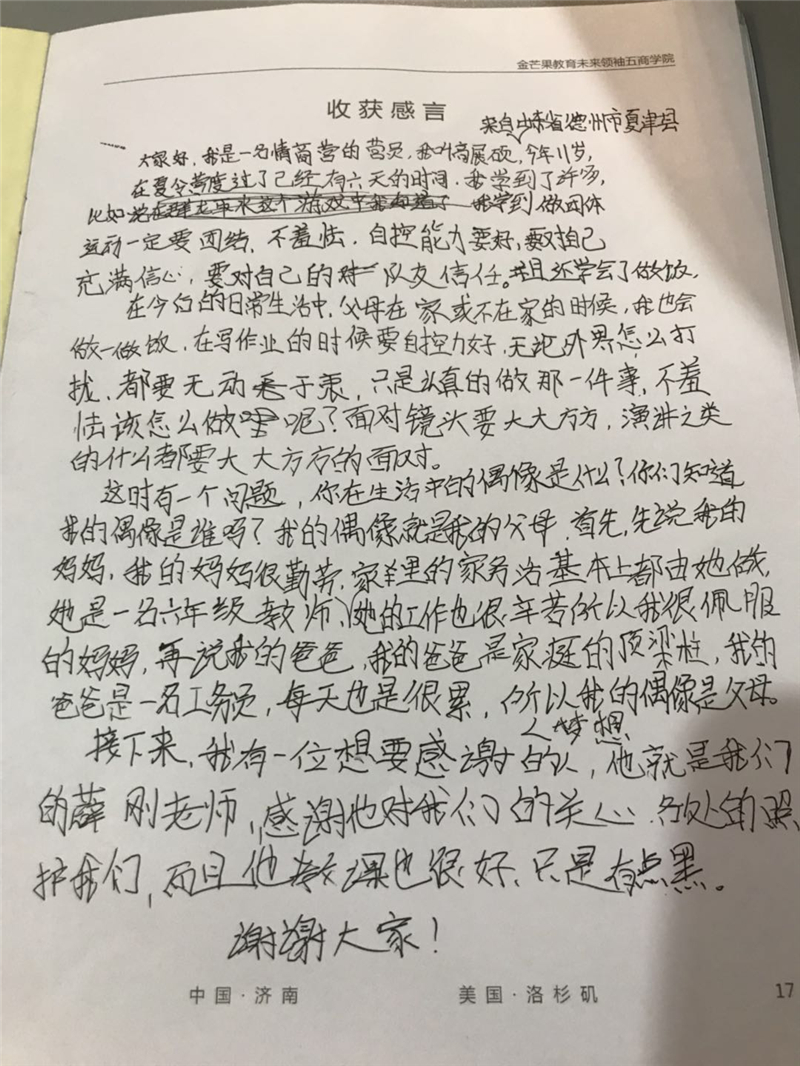 金芒果教育未来领袖五商学院
收获感言
来自山东省德州市夏津县
大家好，我是一名情商营的营员，我叫高展硕，今年11岁，
在夏令营度过了已经有六天的时间，我学到了许多，
比如 我学到做团体
运动一定要团结，不羞怯，自控能力要好，要对自己
充满信心，要对自己的队友信任。并且还学会了做饭，
在今后的日常生活中，父母在家或不在家的时候，我也会
做一做饭，在写作业的时候要自控力好，无论外界怎么打
扰，都要无动于衷，只是认真的做那一件事，不羞
怯该怎么做呢？面对镜头要大大方方，演讲之类
的什么都要大大方方的面对。
这时有一个问题，你在生活中的偶像是什么？你们知道
我的偶像是谁吗？我的偶像就是我的父母，首先，先说我的
妈妈，我的妈妈很勤劳，家里的家务活基本上都由她做，
她是一名六年级教师，她的工作也很辛苦所以我很佩服
的妈妈，再说我的爸爸，我的爸爸是家庭的顶梁柱，我的
爸爸是一名工务员，每天也是很累，所以我的偶像是父母。
接下来，我有一位想要感谢的人，他就是我们
的薛刚老师，感谢他对我们的关心，处处的照
护我们，而且他教课也很好，只是有点黑。
谢谢大家！
中国·济南 美国·洛杉矶 17